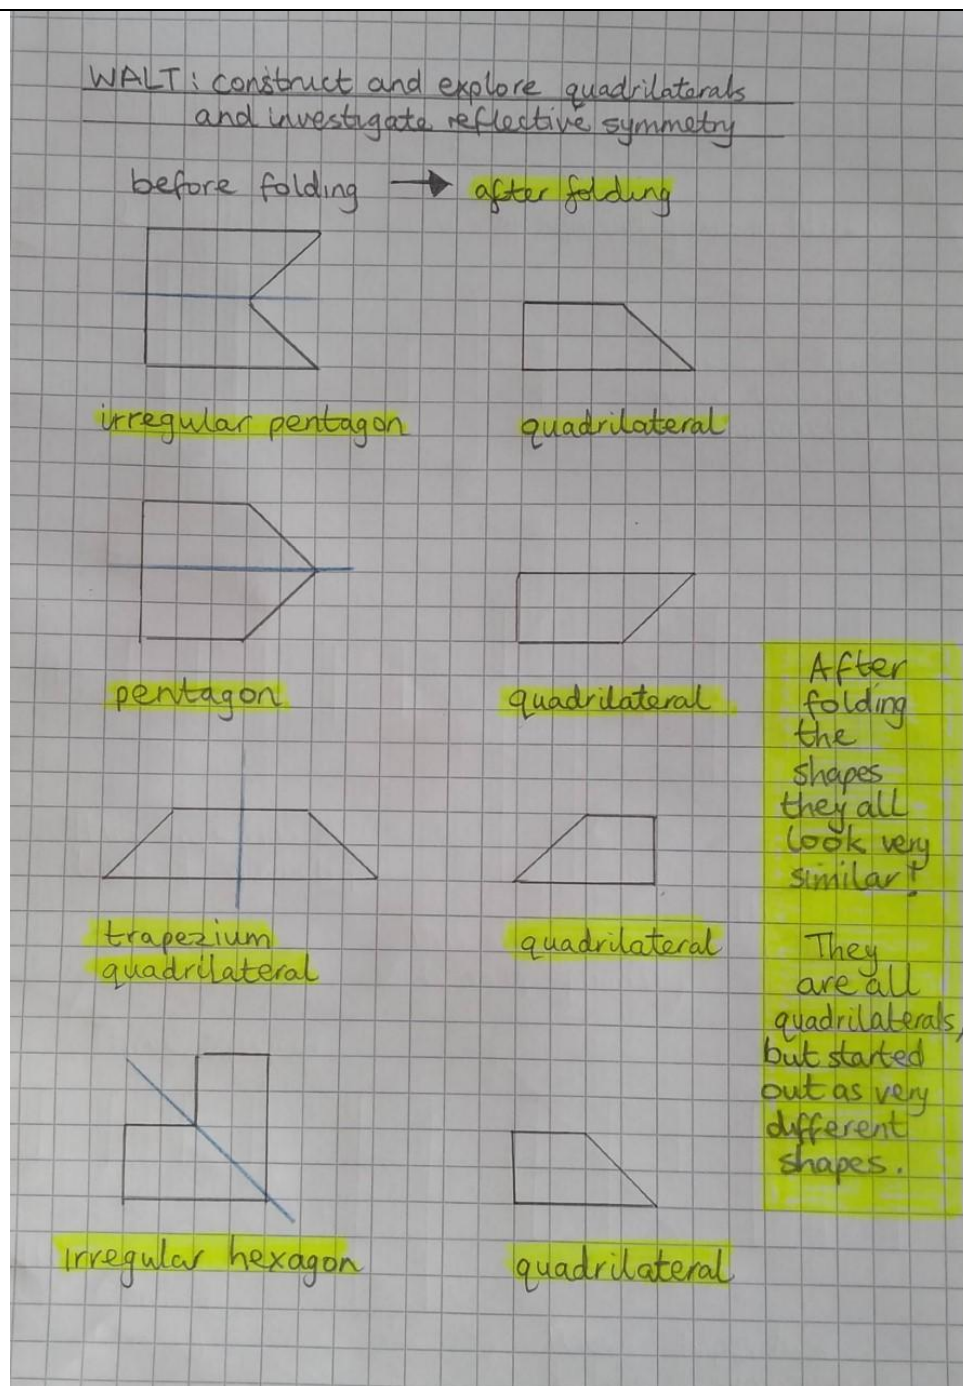 WALT: construct and explore quadrilaterals
and investigate reflective symmetry
before folding → after folding
irregular pentagon
quadrilateral
pentagon
quadrilateral
trapezium
quadrilateral
quadrilateral
irregular hexagon
quadrilateral
After
folding
the
shapes
they all
look very
similar!
They
are all
quadrilaterals,
but started
out as very
different
shapes.